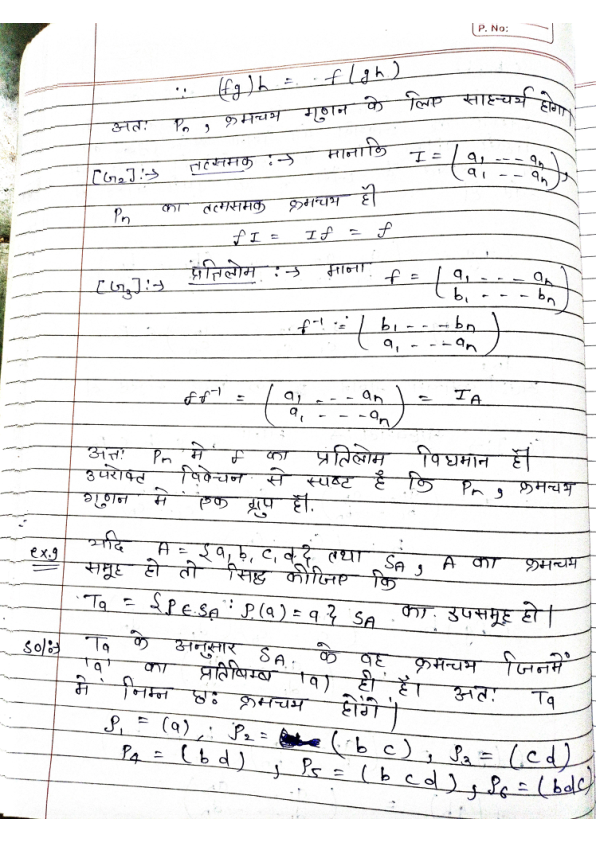 P. No:
∵ (fg)h = f(gh)
अतः Pn, क्रमचय गुणन के लिए साहचर्य होगा।
[G2]:→ तत्समक :→ मानाकि I = (a1 --- an / a1 -- an),
Pn का तत्मसमक क्रमचय है।
fI = If = f
[G3]:→ प्रतिलोम :→ माना f = (a1 - - - an / b1 - - - bn)
f⁻¹ = (b1 - - - bn / a1 - - - an)
ff⁻¹ = (a1 --- an / a1 - - - an) = IA
अतः Pn में f का प्रतिलोम विधमान है।
उपरोक्त विवेचन से स्पष्ट है कि Pn, क्रमचय
गुणन में एक ग्रुप है।.
ex.9 यदि A = {a, b, c, d} तथा SA, A का क्रमचय
समूह हो तो सिद्ध कीजिए कि
Ta = {ρ ∈ SA : ρ(a) = a} SA का उपसमूह हो।
sol:→ Ta के अनुसार SA के वह क्रमचय जिनमें
'a' का प्रतिबिम्ब 'a) ही है। अतः Ta
में निम्न छः क्रमचय होंगे।
ρ1 = (a), ; ρ2 = (b c), ρ3 = (cd)
ρ4 = (bd) , ρ5 = (b c d), ρ6 = (bdc)